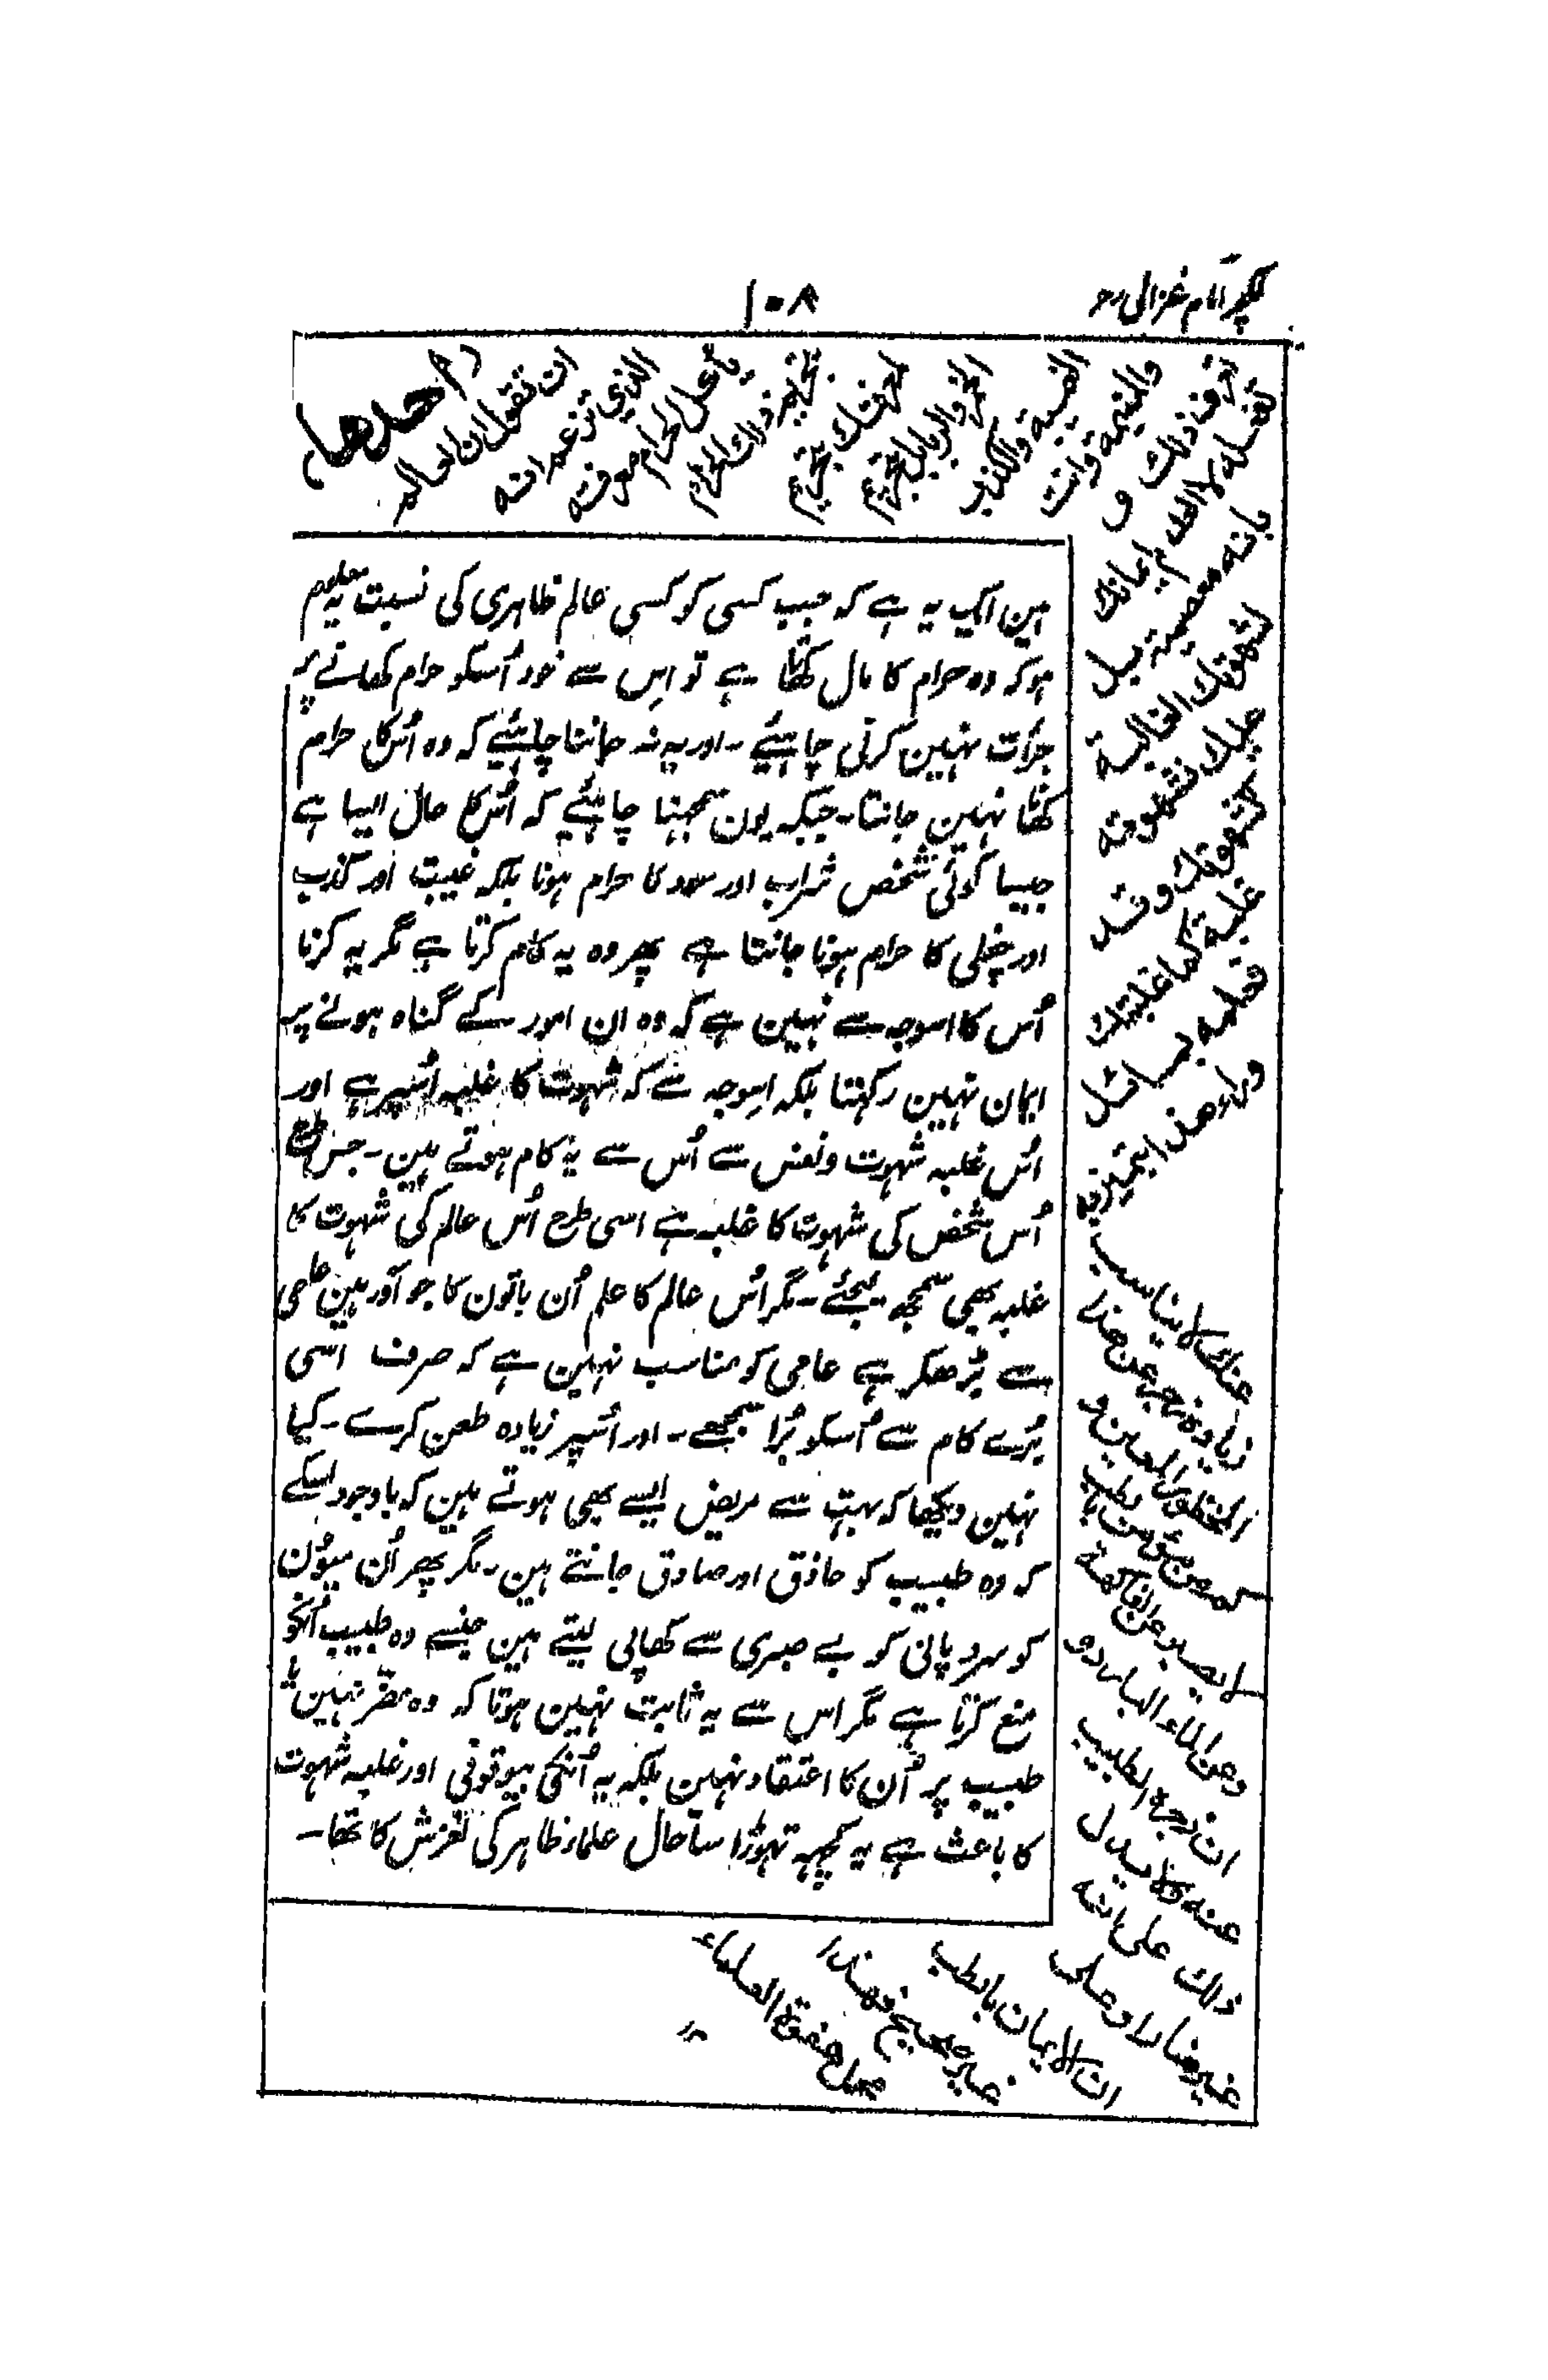 لکچر امام غزالی رح
۱۰۸
(احدها)
ان تقول ان العالم
الذی تزعم انه
یاکل الحرام معرفته
بتحریم ذلک الحرام
کمعرفتک بتحریم
الخمر والربا بل بتحریم
الغیبة والکذب
والنمیمة وانت
تعرف ذلک و
تفعله لا لعدم ایمانک
بانه معصیة بل
لشهوتک الغالبة
علیک فشهوته
کشهوتک وقد
غلبته کما غلبتک
فعلمه بمسائل
وراء هذا یتمیز به
عنک لا یناسب
زیادة زجر عن هذا
المحظور المعین و
کم من مؤمن بالطب
لا یصبر عن الفاکهة
وعن الماء البارد و
ان زجره الطبیب
عنه فلا یدل
ذلک علی انه
غیر ضار او علی
ان الایمان بالطب
غیر صحیح فهذا
محمل هفوة العلماء
مین ایک یہ ہے کہ جب کسی کو کسی عالم ظاہری کی نسبت یہ معلوم
ہو کہ وہ حرام کا مال کھاتا ہے تو اِس سے خود اُسکو حرام کھانے پر
جرأت نہین کرنی چاہئیے - اور یہ نہ جاننا چاہئیے کہ وہ اُس کا حرام
کھانا نہین جانتا - جبکہ یون سمجہنا چاہئیے کہ اُس کا حال ایسا ہے
جیسا کوئی شخص شراب اور سود کا حرام ہونا بلکہ غیبت اور کذب
اور چغلی کا حرام ہونا جانتا ہے پھر وہ یہ کام کرتا ہے مگر یہ کرنا
اُس کا اسوجہ سے نہین ہے کہ وہ ان امور کے گناہ ہونے پر
ایمان نہین رکہتا بلکہ اِسوجہ سے کہ شہوت کا غلبہ اُسپر ہے اور
اُس غلبہ شہوت ونفس سے اُس سے یہ کام ہوتے ہین - جس طرح
اُس شخص کی شہوت کا غلبہ ہے اسی طرح اُس عالم کی شہوت کا
غلبہ بھی سمجھ لیجئے - مگر اُس عالم کا علم اُن باتون کا جو اَور ہین عامی
سے بڑھکر ہے عامی کو مناسب نہین ہے کہ صرف اسی
بُرے کام سے اُسکو بُرا سمجھے - اور اُسپر زیادہ طعن کرے - کیا
نہین دیکھا کہ بہت سے مریض ایسے بھی ہوتے ہین کہ باوجود اسکے
کہ وہ طبیب کو حاذق اور صادق جانتے ہین - مگر پھر اُن میوُن
کو سرد پانی کو بے صبری سے کھا پی لیتے ہین جنسے وہ طبیب اُنکو
منع کرتا ہے مگر اس سے یہ ثابت نہین ہوتا کہ وہ مضر نہین یا
طبیب پر اُن کا اعتقاد نہین بلکہ یہ اُنکی بیوقوفی اور غلبہ شہوت
کا باعث ہے یہ کچہہ تہوڑا سا حال علماء ظاہر کی لغزش کا تھا -